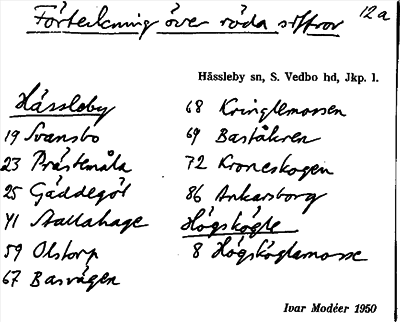 Förteckning över röda siffror 12a
Hässleby sn, S. Vedbo hd, Jkp. l.
Hässleby
19 Svansbo
23 Prästemåla
25 Gäddegöl
41 Stallahage
59 Olstorp
67 Basvägen
68 Kringlemossen
69 Baståkren
72 Kroneskogen
86 Ankarsborg
Högskögle
8 Högsköglamosse
Ivar Modéer 1950